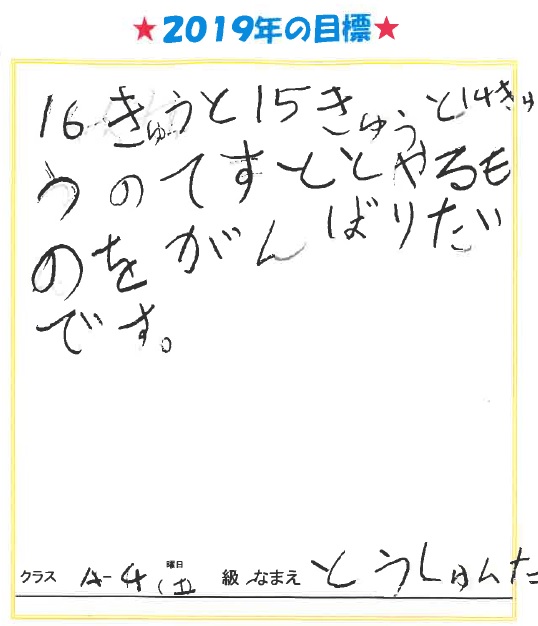 ★2019年の目標★
16きゅうと15きゅうと14きゅ
うのてすととやるも
のをがんばりたい
です。
クラス A-4(土) 曜日 級 なまえ とうしゅんた